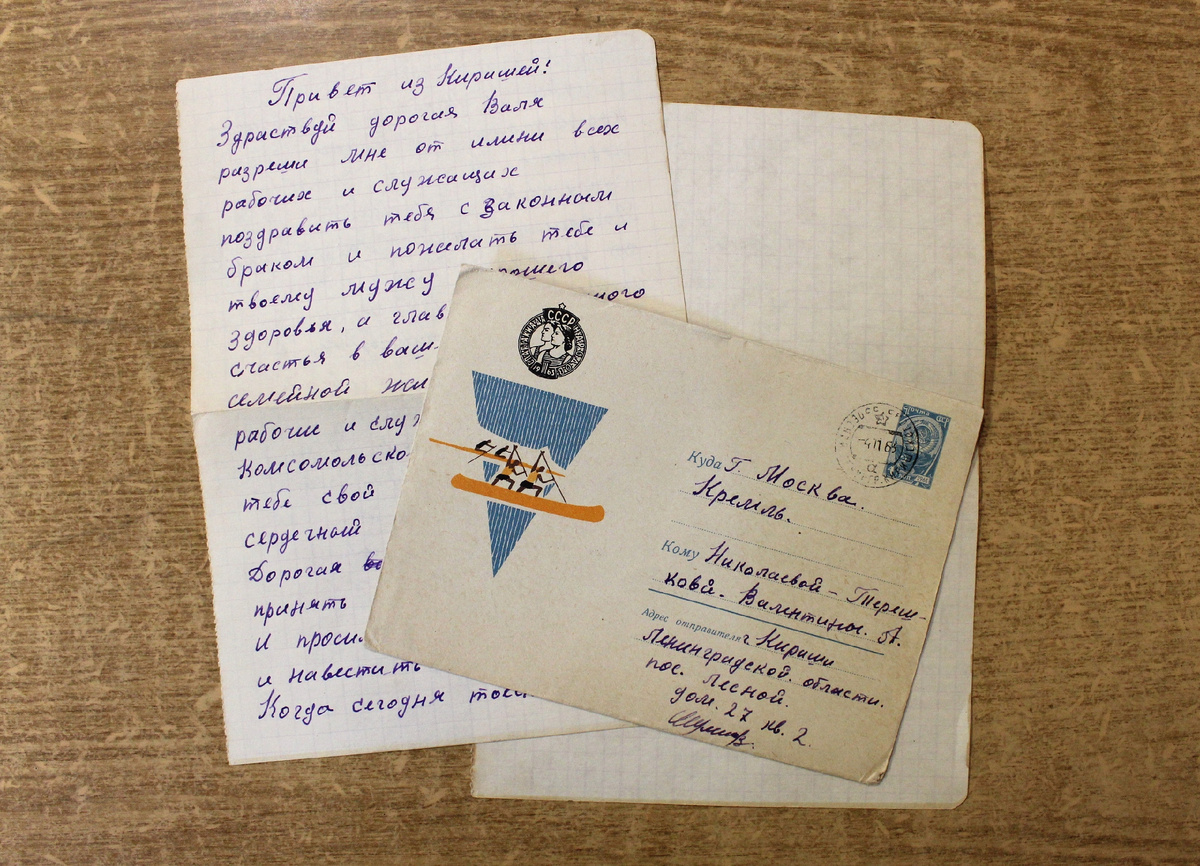 Привет из Киришей!
Здраствуй дорогая Валя
разреши мне от имини всех
рабочих и служащих
поздравить тебя с Законным
браком и пожелать тебе и
твоему мужу
здоровья, а глав
счастья в ваш
семейной жи
рабочие и служ
Комсомольско
тебе свой
сердечный
Дорогая
принять
и проси
и навестить
Когда сегодня
СССР
1963
Куда Г. Москва.
Кремль.
Кому Николаевой - Тереш-
ковй. Валентины.
Адрес отправителя г Кириши
Ленинградской. области.
пос. Лесной.
дом. 27 кв. 2.